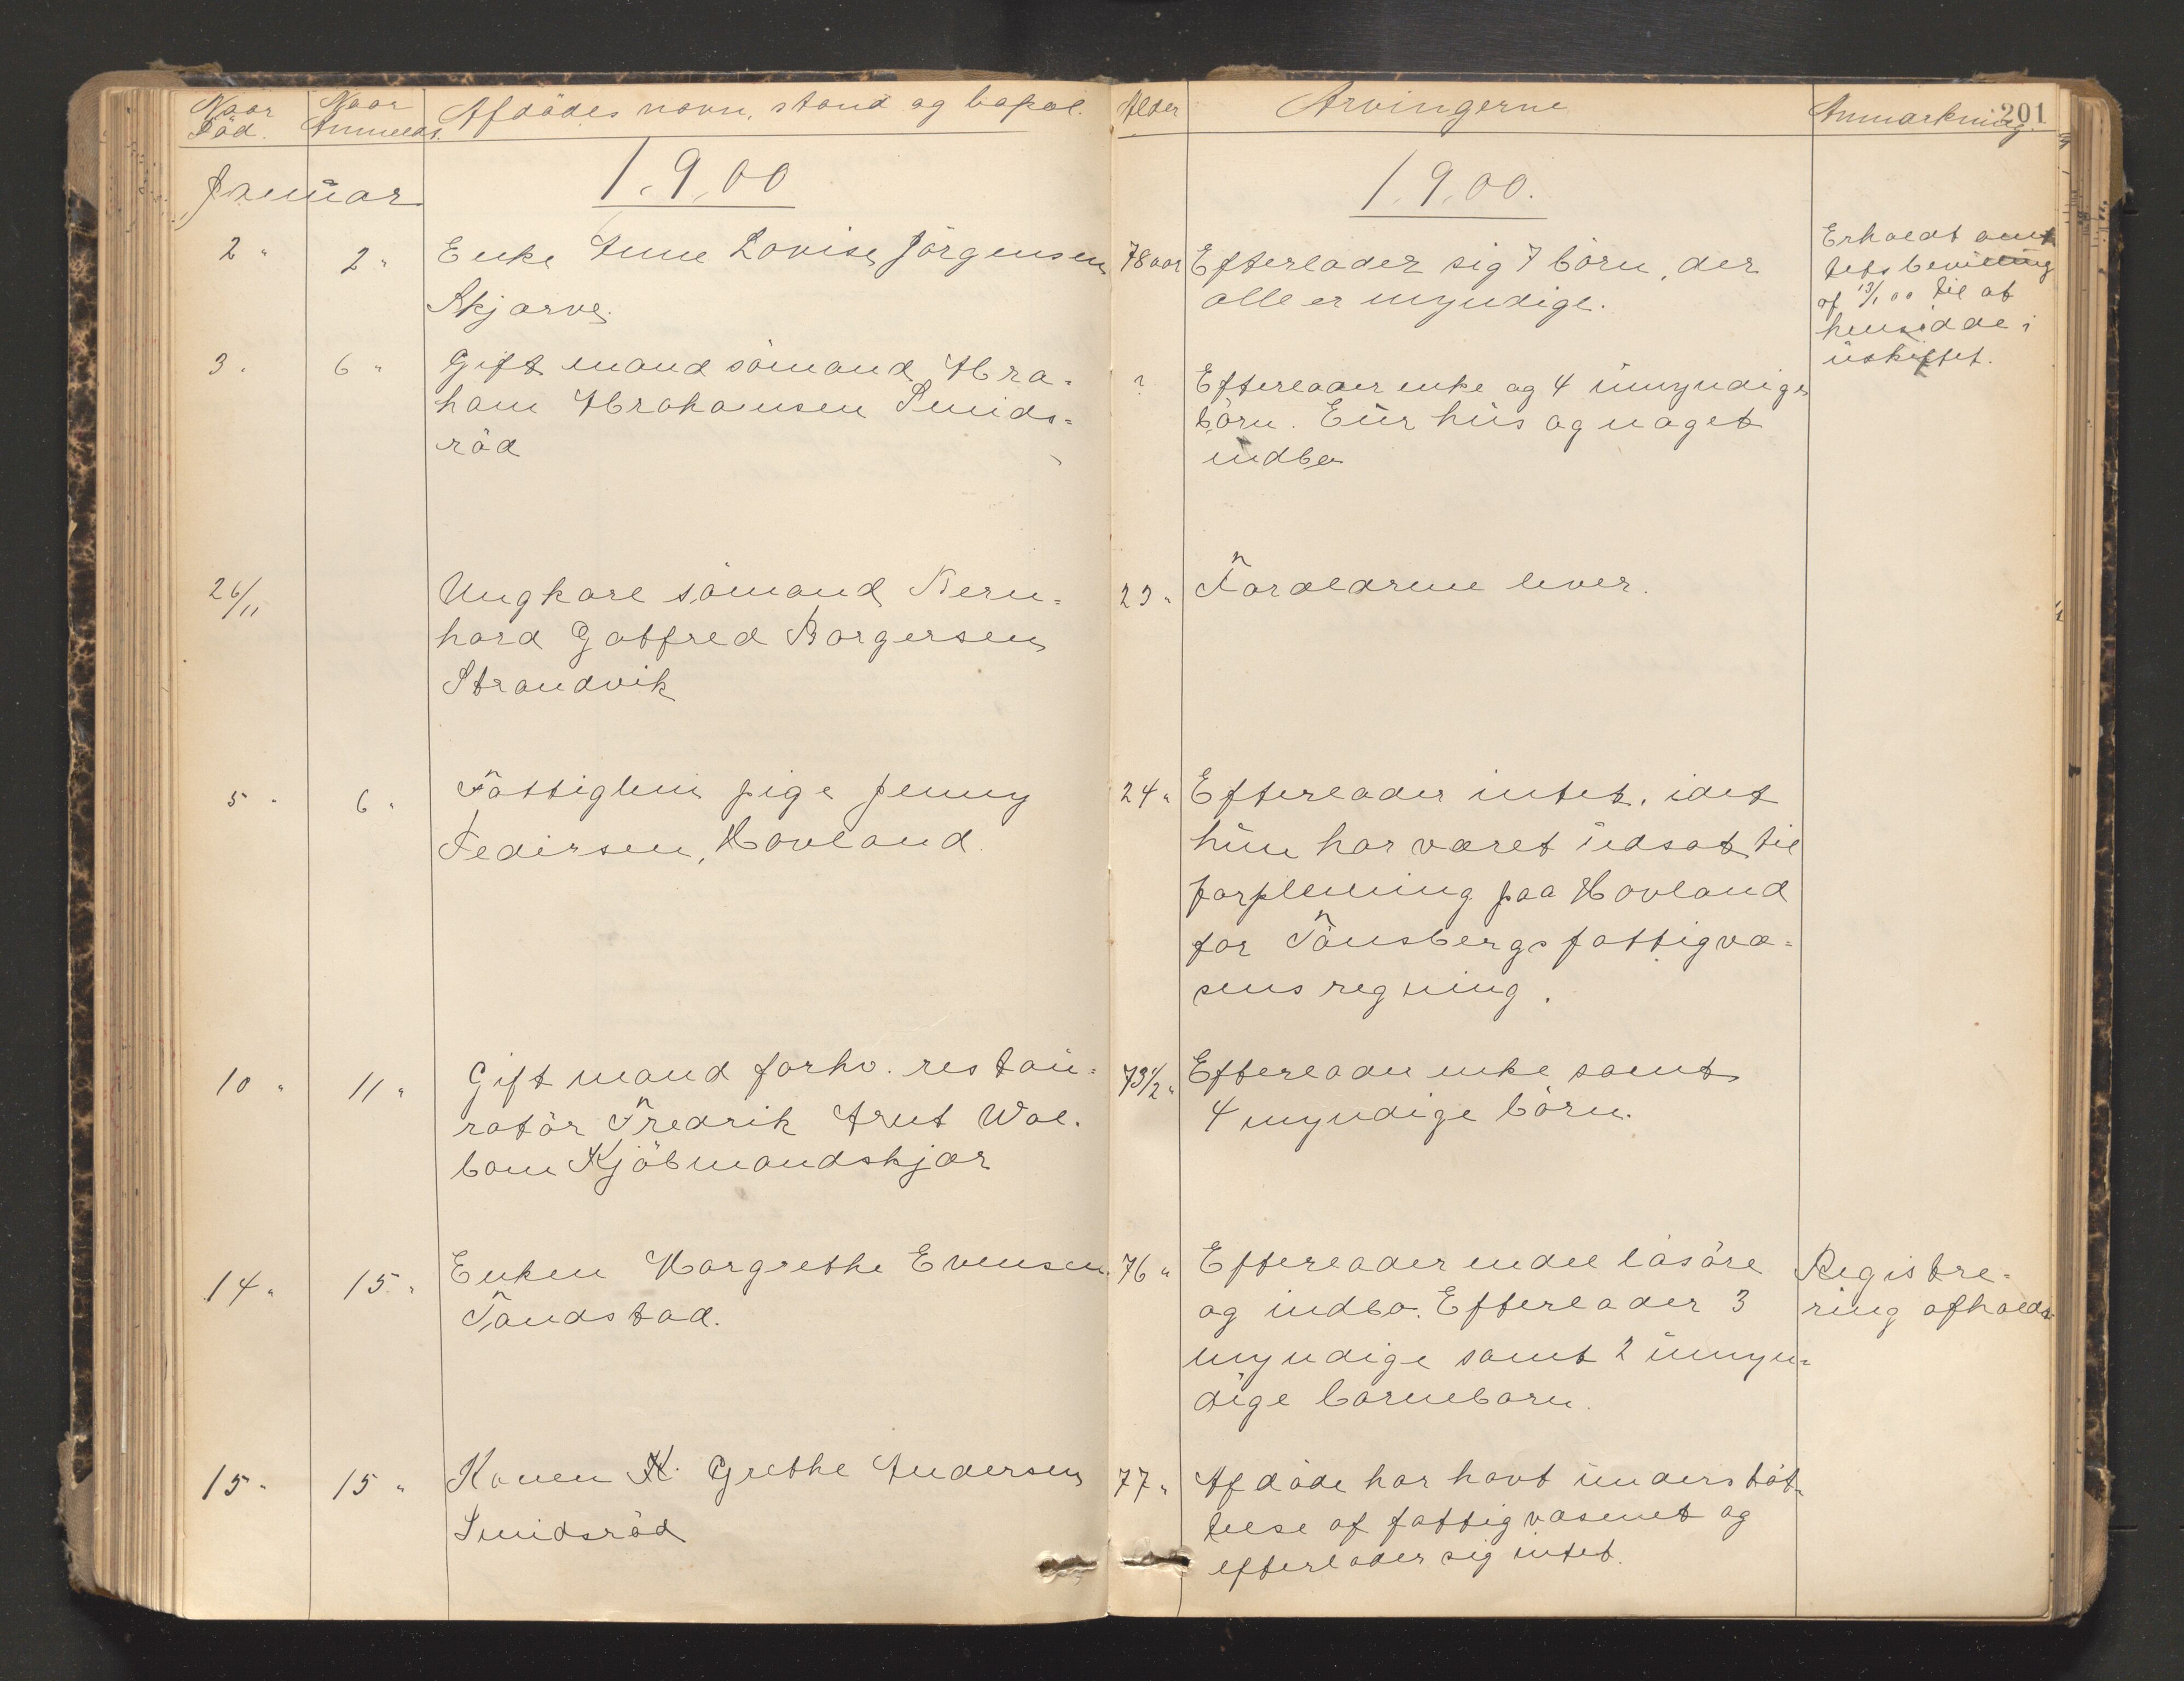 Naar Död.
Naar Anmeldt.
Afdödes navn, stand og bopæl.
Alder
Arvingerne
Anmærkning.
201
Januar
1900
1900.
2 "
2 "
Enke Anne Lovise Jörgensen
Skjærve.
78 aar
Efterlader sig 7 börn, der
alle er myndige.
Erholdt amt
tets bevilling
af 13/1 00 til at
hensidde i
uskiftet.
3 "
6 "
Gift mand sömand Abra=
ham Abrahamsen Smids=
röd
?
Efterlader enke og 4 umyndige
börn. Eier hus og noget
indbo
26/11
Ungkarl sömand Bern=
hard Gotfred Borgersen
Strandvik
23 "
Forældrene lever.
5 "
6 "
Fattiglem pige Jenny
Pedersen, Hovland.
24 "
Efterlader intet, idet
hun har været indsat til
forpleining paa Hovland
for Tönsbergs fattigvæ=
sens regning.
10 "
11 "
Gift mand forhv. restau=
ratör Fredrik Arnt Wal=
bom Kjöbmandskjær
73 1/2 "
Efterlader enke samt
4 myndige börn.
14 "
15 "
Enken Margrethe Evensen
Tandstad.
76 "
Efterlader endel lösöre
og indbo. Efterlader 3
myndige samt 2 umyn=
dige barnebarn.
Registre=
ring afholdt
15 "
15 "
Konen K. Grethe Andersen
Smidsröd
77 "
Afdöde har havt understöt=
telse af fattigvæsenet og
efterlader sig intet.